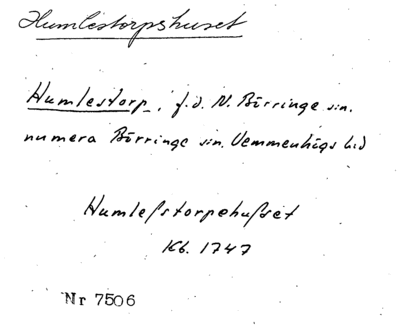 Humlestorpshuset
Humlestorp, f.d. N. Börringe sn.
numera Börringe sn. Vemmenhögs hd
Humleſstorpehuſset
Kb. 1747
Nr 7506